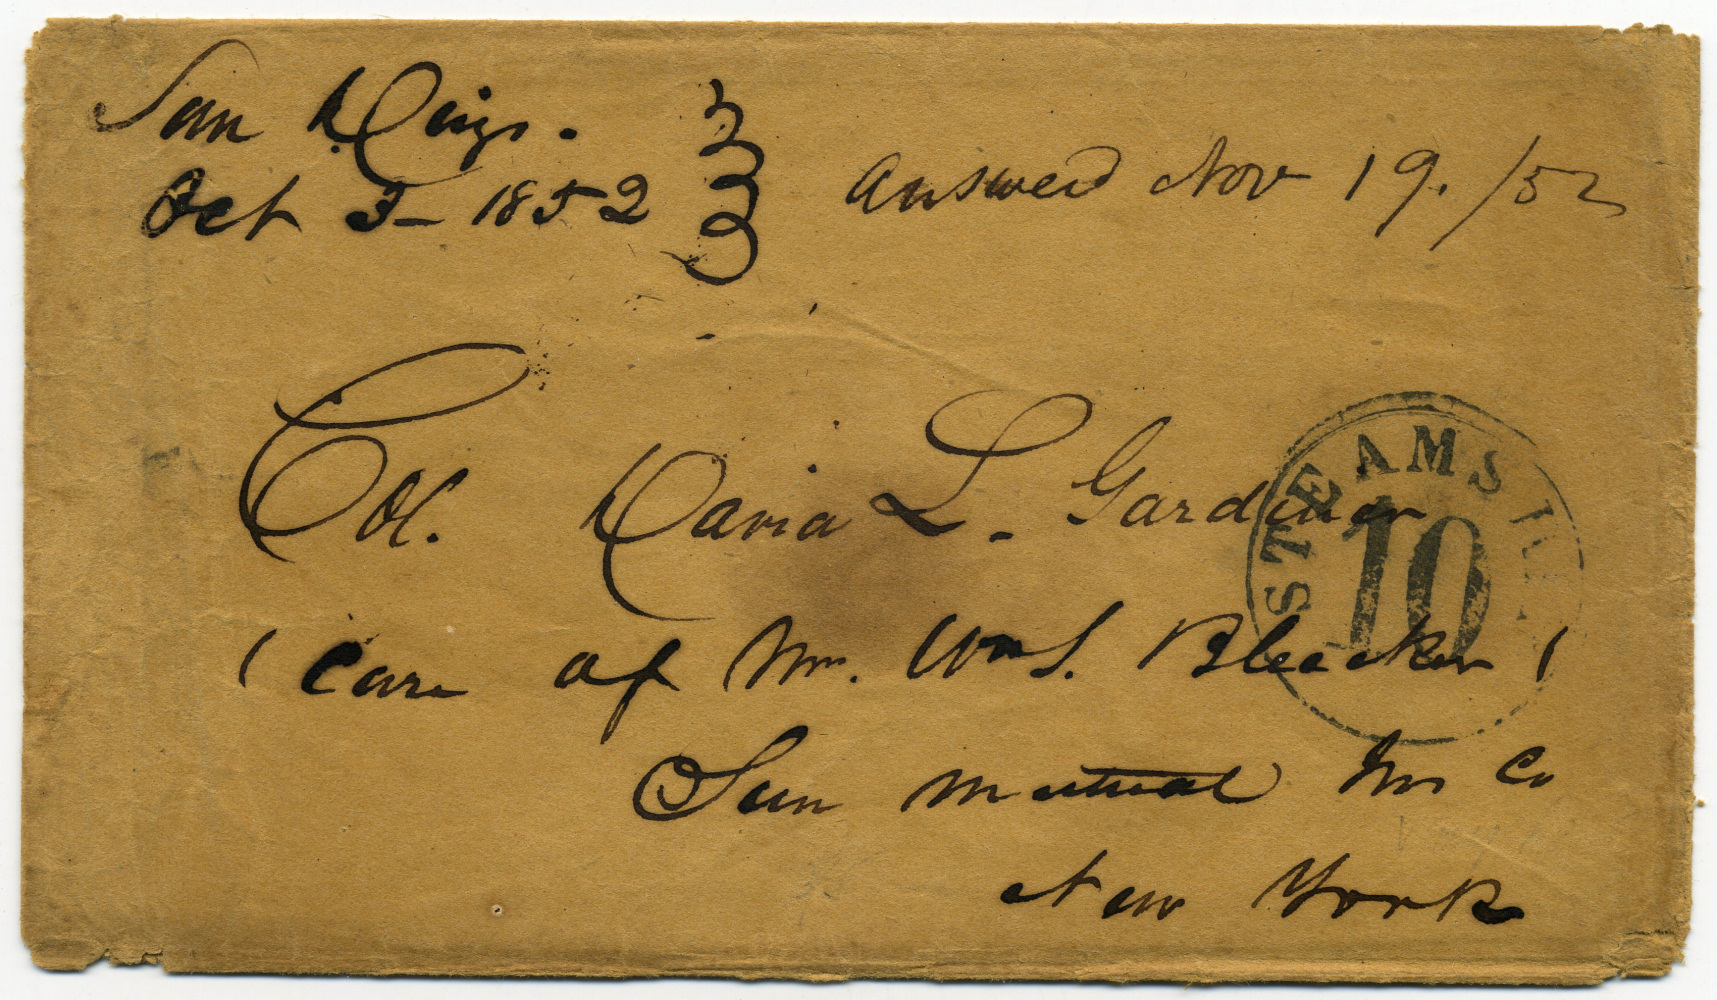 San Diego.
Oct 3 - 1852
answered Nov 19. /52
Col. David L. Gardiner
STEAMSHIP
10
( Care of Mr. Wm S. Bleecker )
Sun Mutual Ins Co
New York